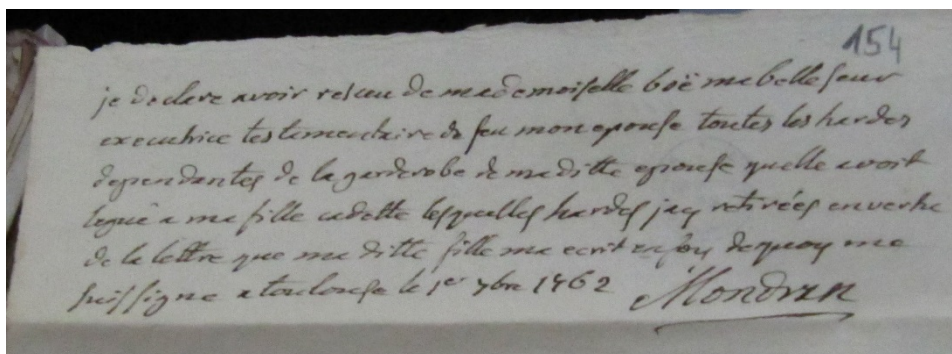 154
je declare avoir rescu de mademoiselle boë ma belle seur
executrice testamentaire de feu mon epouse toutes les hardes
dependantes de la garderobe de maditte epouse quelle avoit
legué a ma fille cadette lesquelles hardes jay retirées en vertu
de la lettre que ma ditte fille ma ecrit en foy de quoy me
suis signe a toulouse le 1er 7bre 1762 Mondran